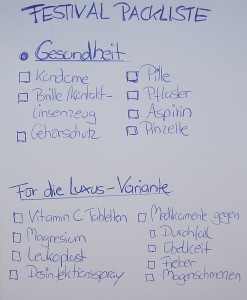 FESTIVAL PACKLISTE
Gesundheit
Kondome
Brille/Kontakt-
linsenzeug
Gehörschutz
Pille
Pflaster
Aspirin
Pinzette
Für die Luxus-Variante
Vitamin C Tabletten
Magnesium
Leukoplast
Desinfektionsspray
Medikamente gegen
Durchfall
Übelkeit
Fieber
Magenschmerzen